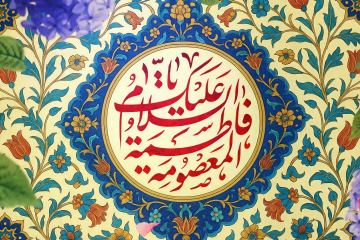 السلام علیک یا فاطمة المعصومة